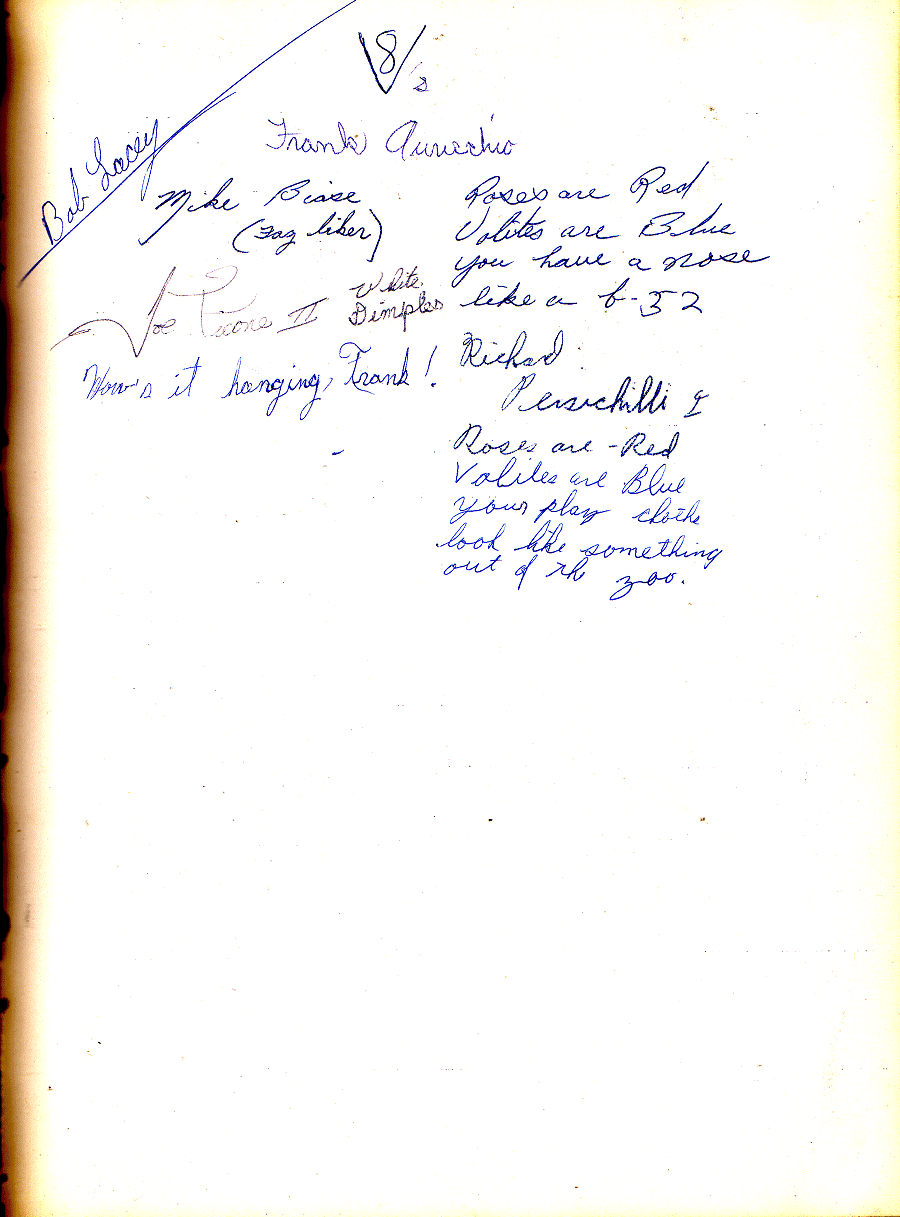 8/s
Frank Aurecchio
Bob Lacey
Mike Biase
(Faz liker)
Joe Picone II
White
Dimples
How's it hanging, Frank!
Roses are Red
Volites are Blue
you have a nose
like a b-52
Richard
Persichilli I
Roses are - Red
Volites are Blue
your play cloths
look like something
out of th zoo.